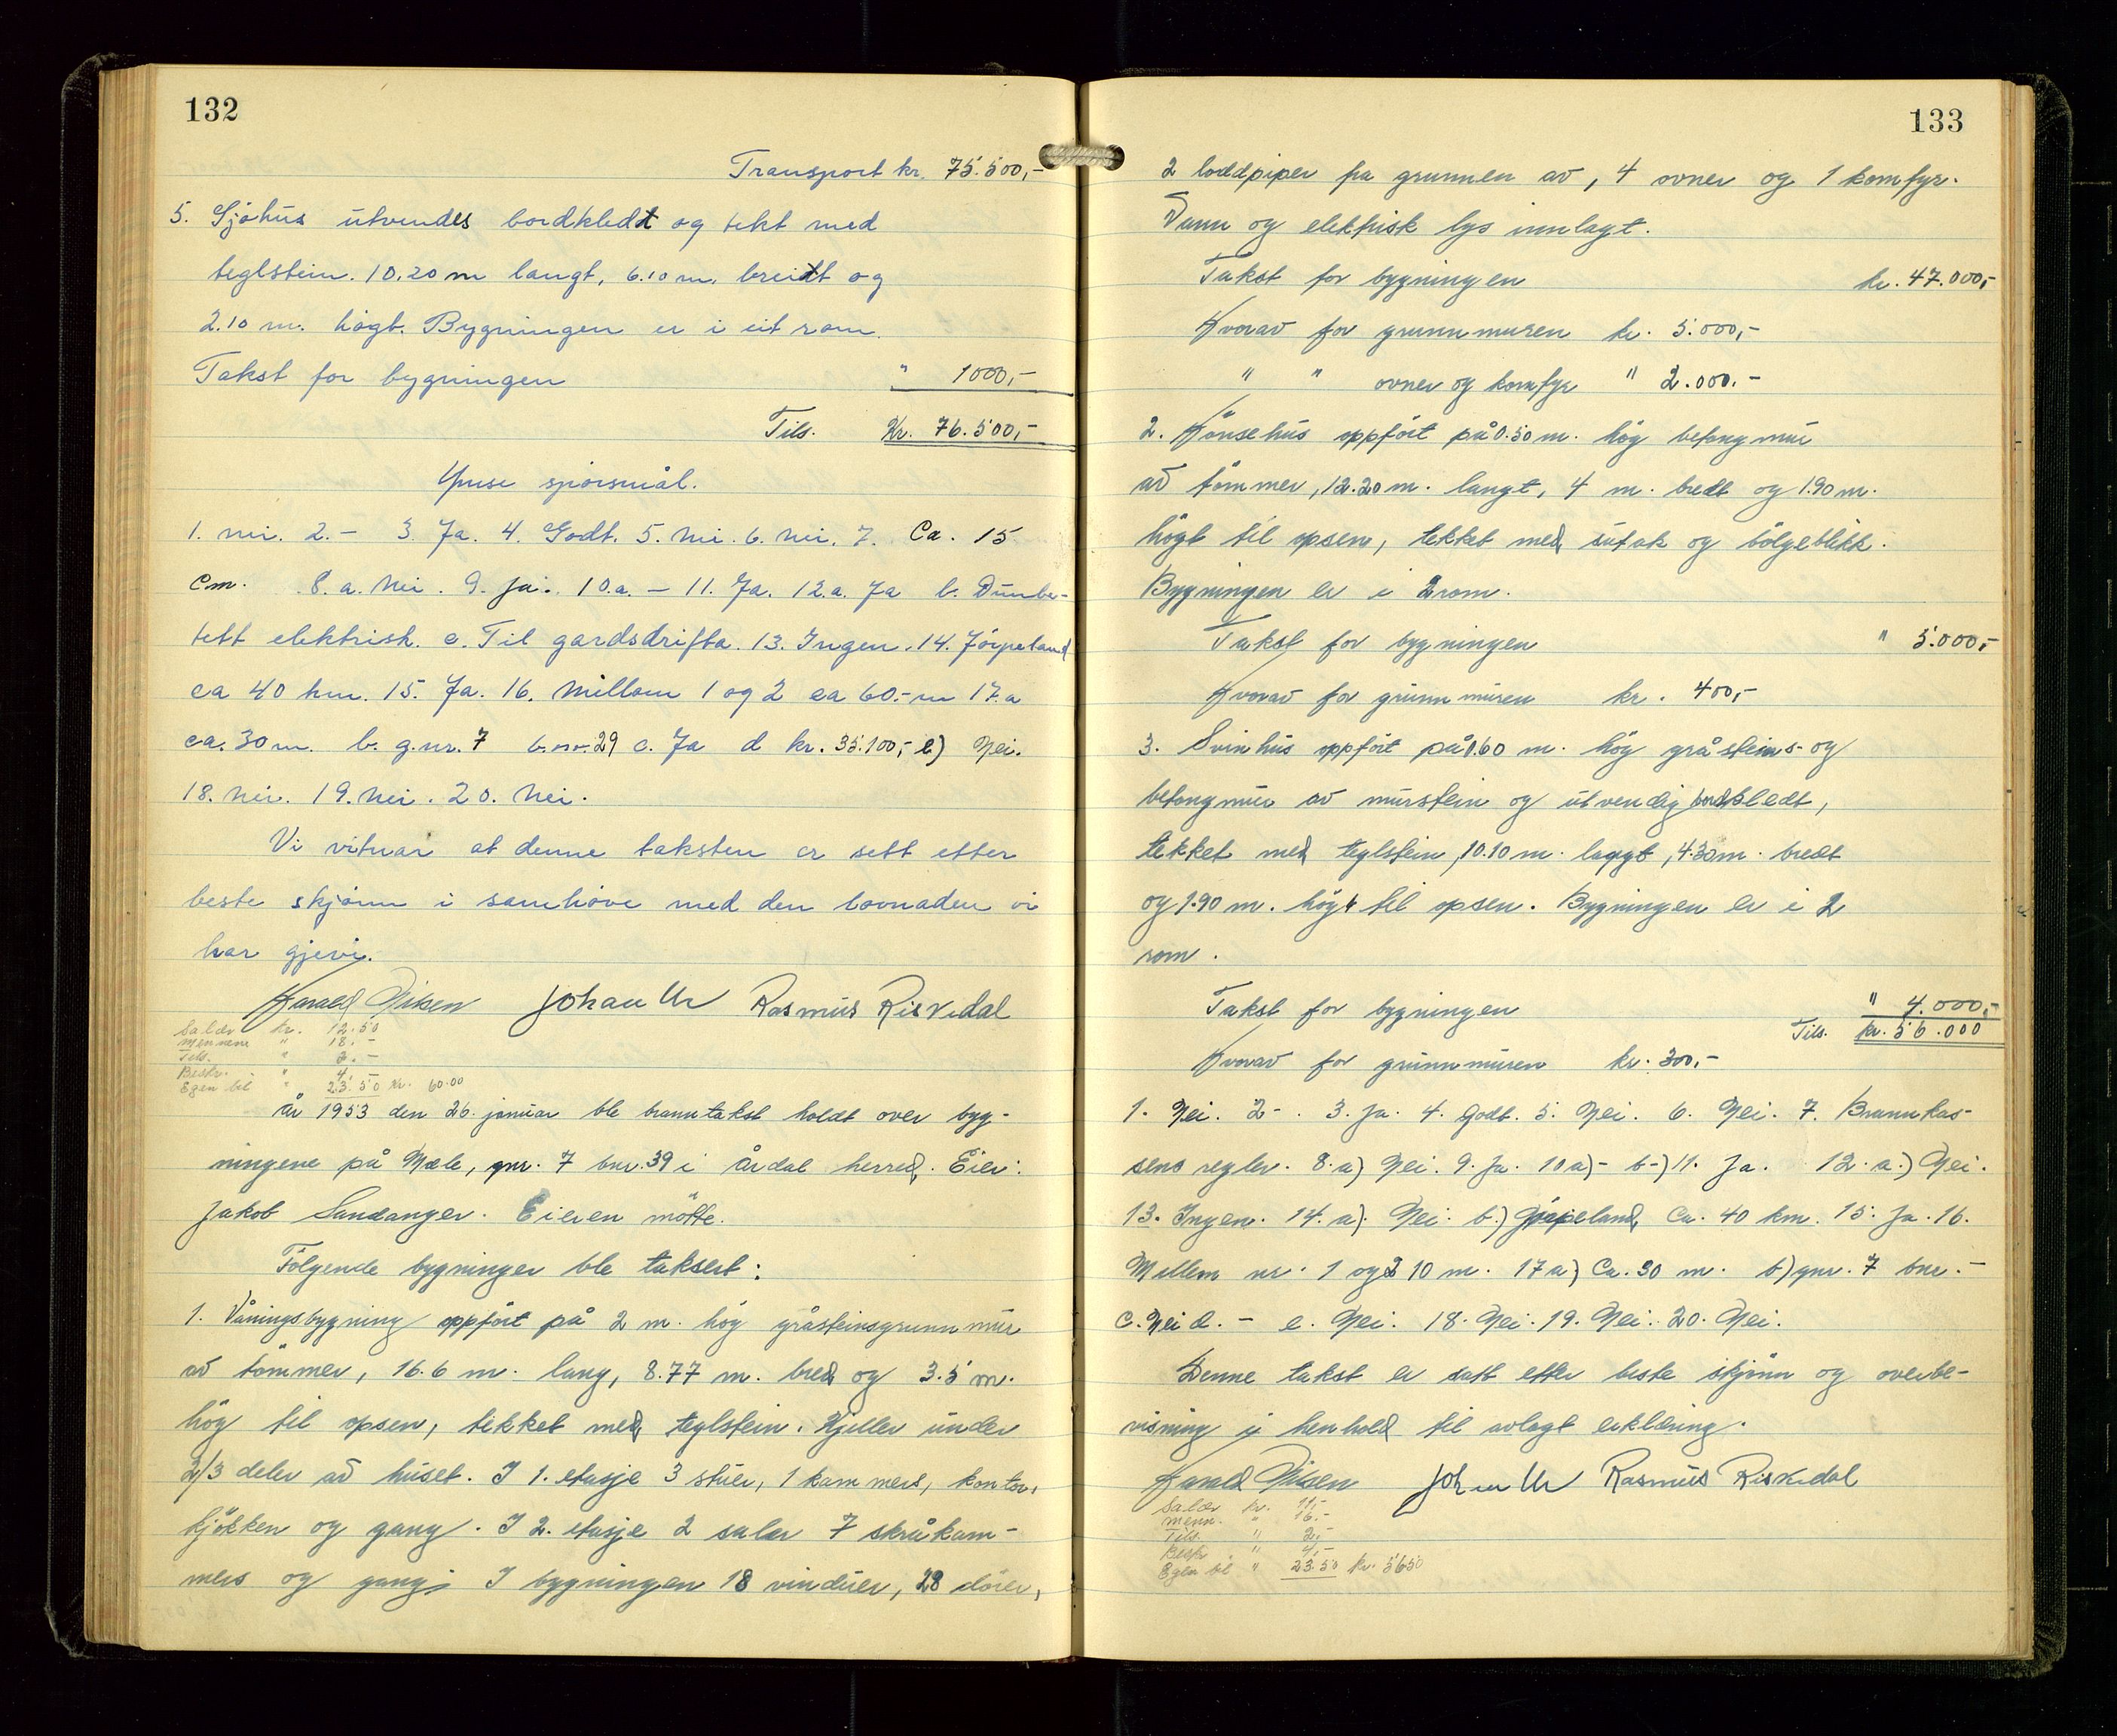 132
Transport kr. 75.500,-
5. Sjøhus utvendes bordkledt og tekt med
teglstein. 10.20 m langt, 6.10 m. breidt og
2.10 m. høgt. Bygningen er i eit rom.
Takst for bygningen " 1000,-
Tils. Kr. 76.500,-
Ymse spörsmål.
1. nei. 2.- 3. Ja. 4. Godt. 5. Nei. 6. nei. 7. Ca. 15
cm. 8. a. Nei. 9. ja. 10.a. — 11. Ja. 12.a. Ja b.
tett elektrisk. c. Til gardsdrifta. 13. Ingen. 14. Jörpeland
ca 40 km. 15. Ja. 16. Millom 1 og 2 ca 60.-m 17.a
ca. 30 m. b. g.nr. 7 b.nr. 29 c. Ja d kr. 35.100,- e) Nei.
18. Nei. 19. Nei. 20. Nei.
Vi vitnar at denne taksten er sett etter
beste skjönn i samhöve med den lovnaden vi
har gjeve.
Harald Nilsen Johan Ur Rasmus Riskedal
Salær kr. 12.50
Mennene " 18.-
Tils. " 2.-
Beskr. " 4.-
Egen bil " 23.50 kr. 60.00
År 1953 den 26. januar ble branntakst holdt over byg-
ningene på Mæle, gnr. 7 bnr. 39 i Årdal herred. Eier:
Jakob Sandanger. Eieren mötte.
Fölgende bygninger ble taksert:
1. Våningsbygning oppfört på 2 m. hög gråsteinsgrunnmur
av tömmer, 16.6 m. lang, 8.77 m. bred og 3.5 m.
hög til opsen, tekket med teglstein. Kjeller under
2/3 deler av huset. I 1. etasje 3 stuer, 1 kammers, kontor,
kjökken og gang. I 2. etasje 2 saler 7 skråkam-
mers og gang. I bygningen 18 vinduer, 28 dörer,
133
2 loddpiper fra grunnen av, 4 ovner og 1 komfyr.
Vann og elektrisk lys innlagt.
Takst for bygningen kr. 47.000,-
Hvorav for grunnmuren kr. 5.000,-
" " ovner og komfyr " 2.000.-
2. Hönsehus oppfört på 0.50 m. hög betongmur
av tömmer, 12.20 m. langt, 4 m. bredt og 1.90 m.
högt til opsen, tekket med sutak og bölgeblikk.
Bygningen er i 2 rom.
Takst for bygningen " 5.000,-
Hvorav for grunnmuren kr. 400,-
3. Svinhus oppfört på 1.60 m. hög gråsteins- og
betongmur av murstein og utvendig bordkledt,
tekket med teglstein, 10.10 m. langt, 4.30 m. bredt
og 1.90 m. högt til opsen. Bygningen er i 2
rom.
Takst for bygningen " 4.000,-
Tils. kr. 56.000
Hvorav for grunnmuren kr. 300,-
1. Nei. 2- . 3. Ja. 4. Godt. 5. Nei. 6. Nei. 7. Brannkas-
sens regler. 8. a) Nei. 9. Ja. 10 a)- b-) 11. Ja. 12. a.) Nei.
13. Ingen. 14. a). Nei. b.) Jörpeland, Ca. 40 km. 15. Ja. 16.
Mellem nr. 1 og 2 10 m. 17 a) Ca. 30 m. b) gnr. 7 bnr. -
c. Nei d. - e. Nei. 18. Nei. 19. Nei. 20. Nei.
Denne takst er satt etter beste skjönn og overbe-
visning i henhold til avlagt erklæring.
Harald Nilsen Johan Ur Rasmus Riskedal
Salær kr. 11,-
Menn. " 16.-
Tils. " 2.-
Beskr. " 4,-
Egen bil " 23.50 kr. 56.50